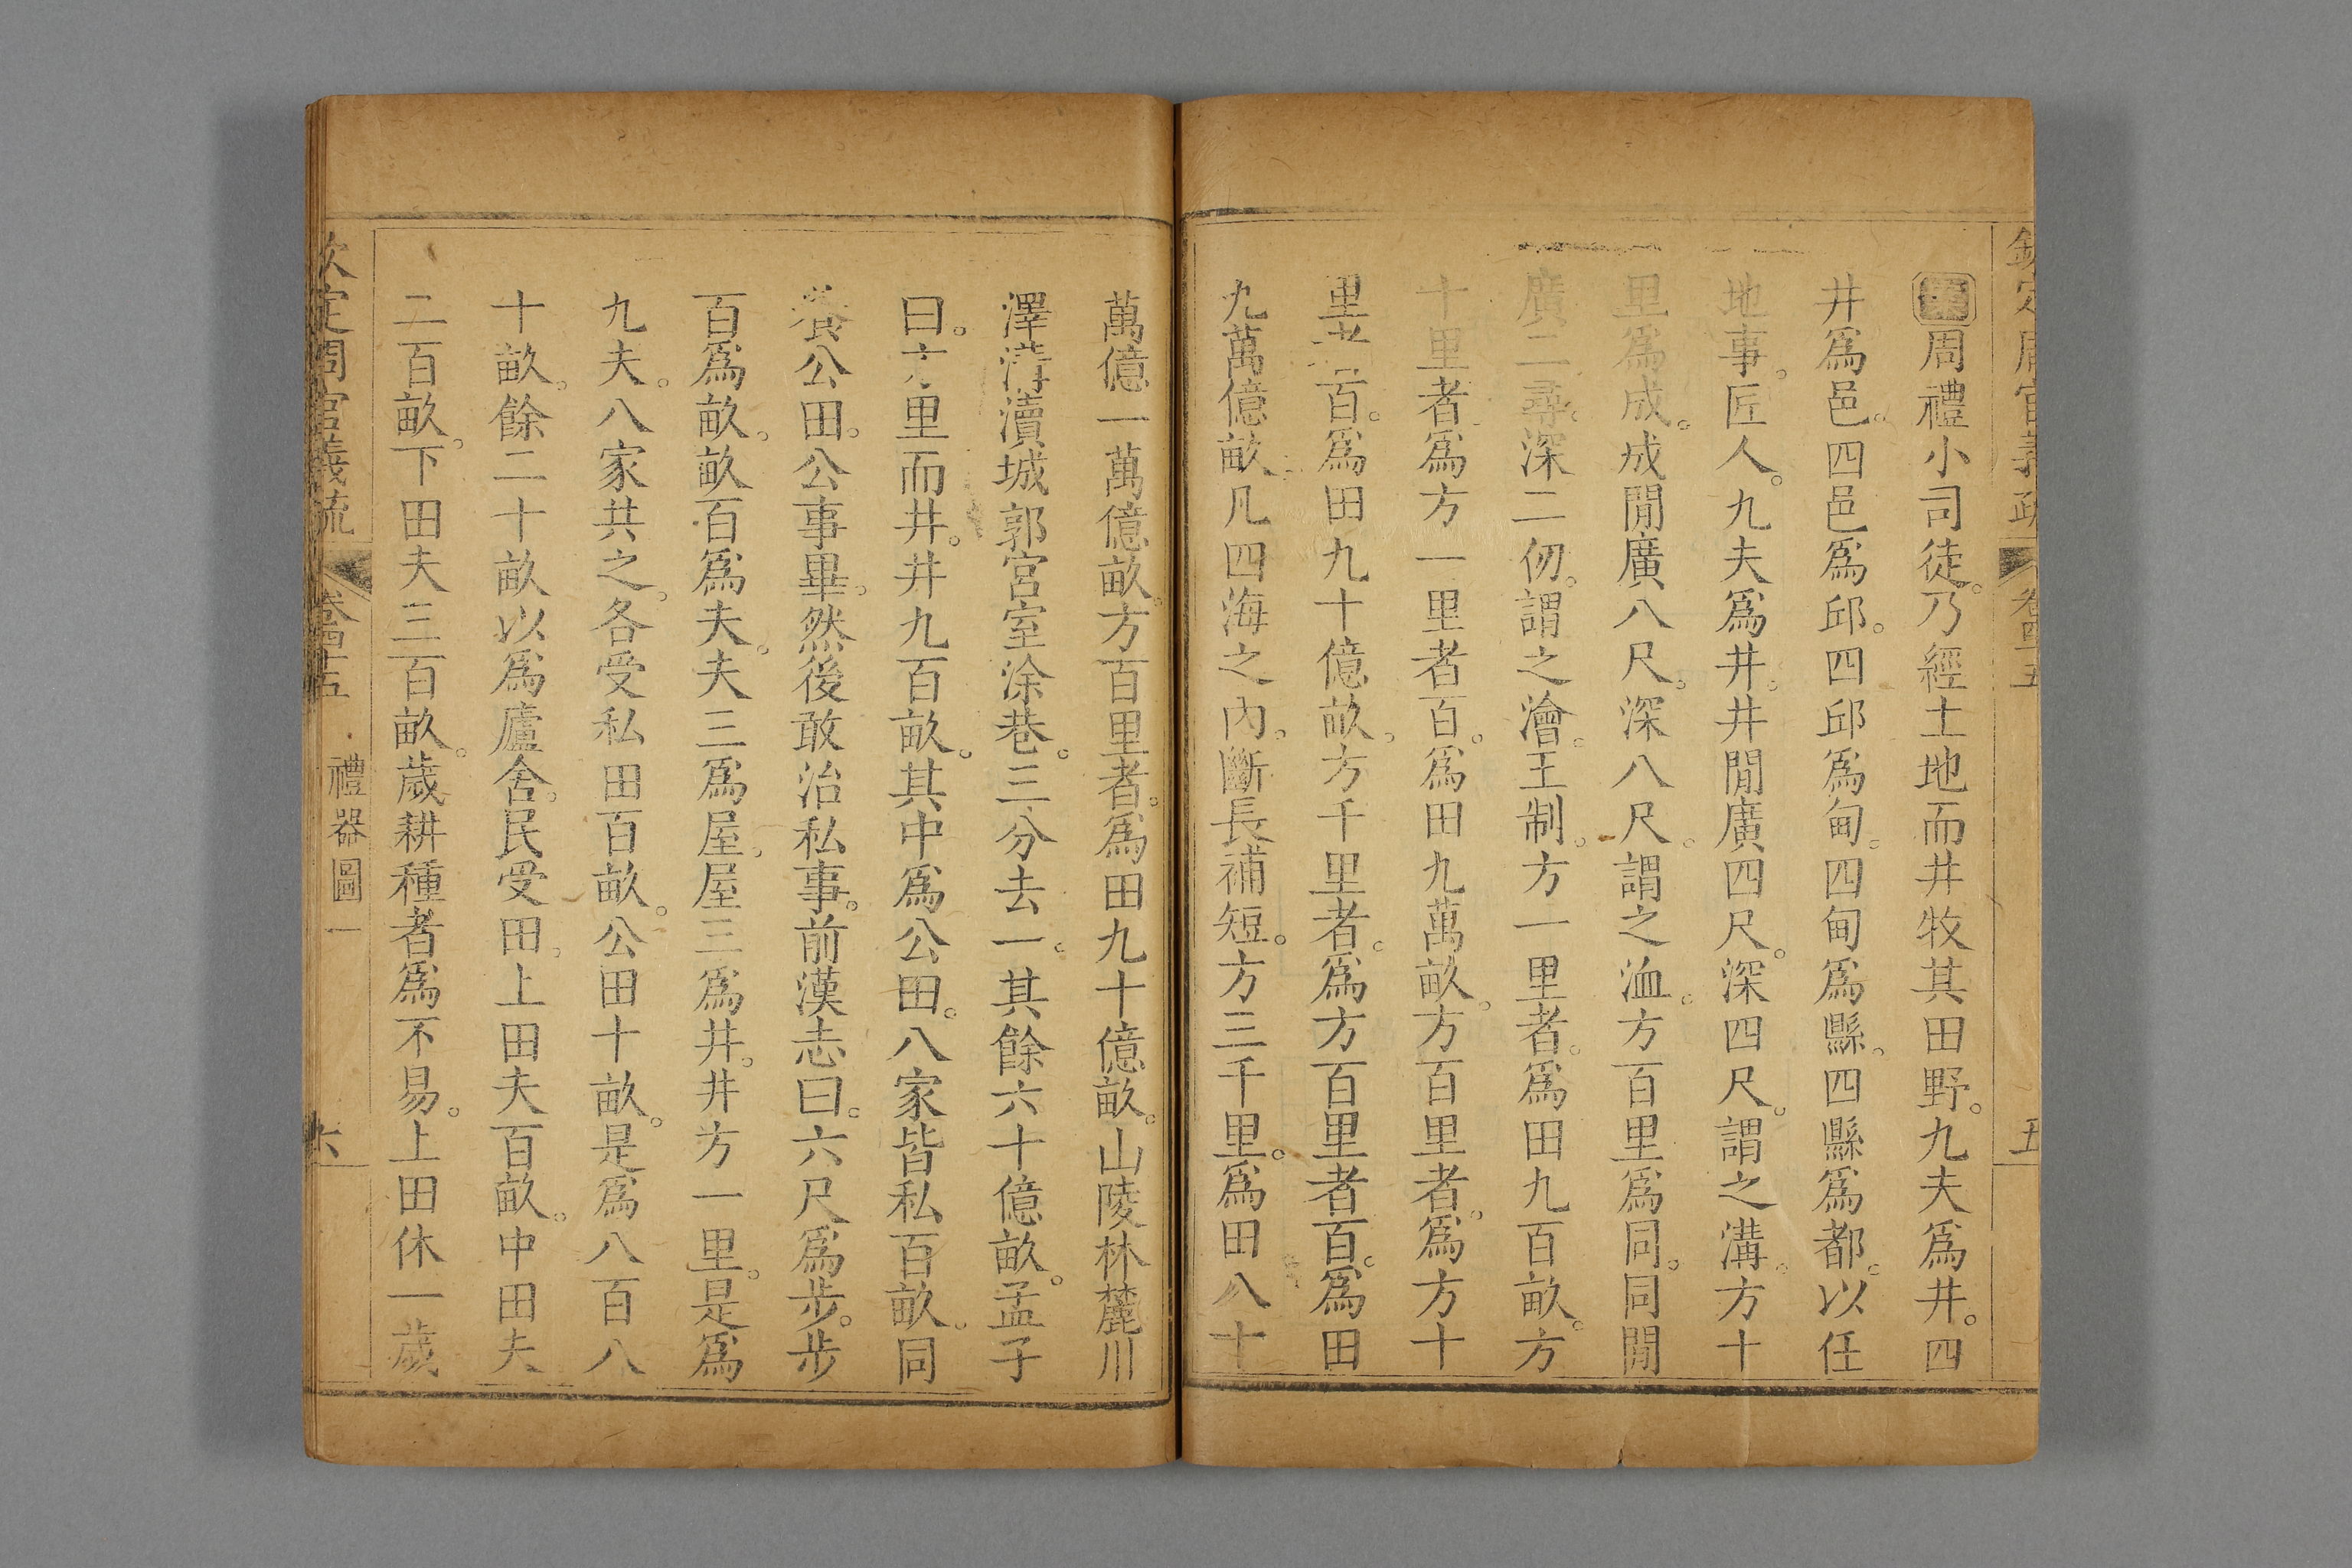 周禮小司徒。乃經土地而井牧其田野。九夫爲井。四
井爲邑。四邑爲邱。四邱爲甸。四甸爲縣。四縣爲都。以任
地事。匠人。九夫爲井。井閒廣四尺。深四尺。謂之溝。方十
里爲成。成閒廣八尺。深八尺。謂之洫。方百里爲同。同閒
廣二尋。深二仞。謂之澮。王制。方一里者。爲田九百畝。方
十里者爲方一里者百。爲田九萬畝。方百里者。爲方十
里者百。爲田九十億畝。方千里者。爲方百里者百。爲田
九萬億畝。凡四海之內。斷長補短。方三千里。爲田八十
萬億一萬億畝。方百里者。爲田九十億畝。山陵林麓川
澤溝瀆城郭宮室涂巷。三分去一。其餘六十億畝。孟子
曰。方里而井。井九百畝。其中爲公田。八家皆私百畝。同
養公田。公事畢。然後敢治私事。前漢志曰。六尺爲步。步
百爲畝。畝百爲夫。夫三爲屋。屋三爲井。井方一里。是爲
九夫。八家共之。各受私田百畝。公田十畝。是爲八百八
十畝。餘二十畝以爲廬舍。民受田。上田夫百畝。中田夫
二百畝。下田夫三百畝。歲耕種者爲不易。上田休一歲
欽定周官義疏 卷四十五 禮器圖一 六